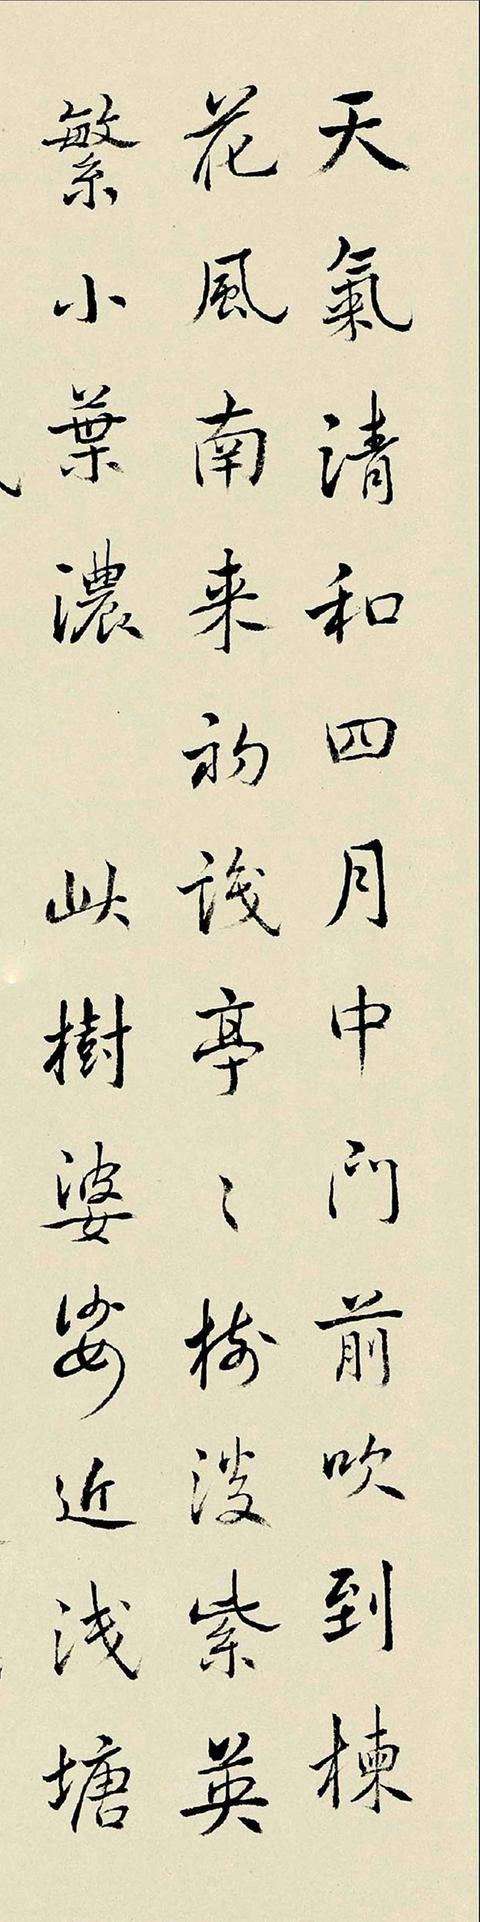 天氣清和四月中门前吹到楝
花風南来初識亭〻樹淡紫英
繁小葉濃 此樹婆娑近浅塘